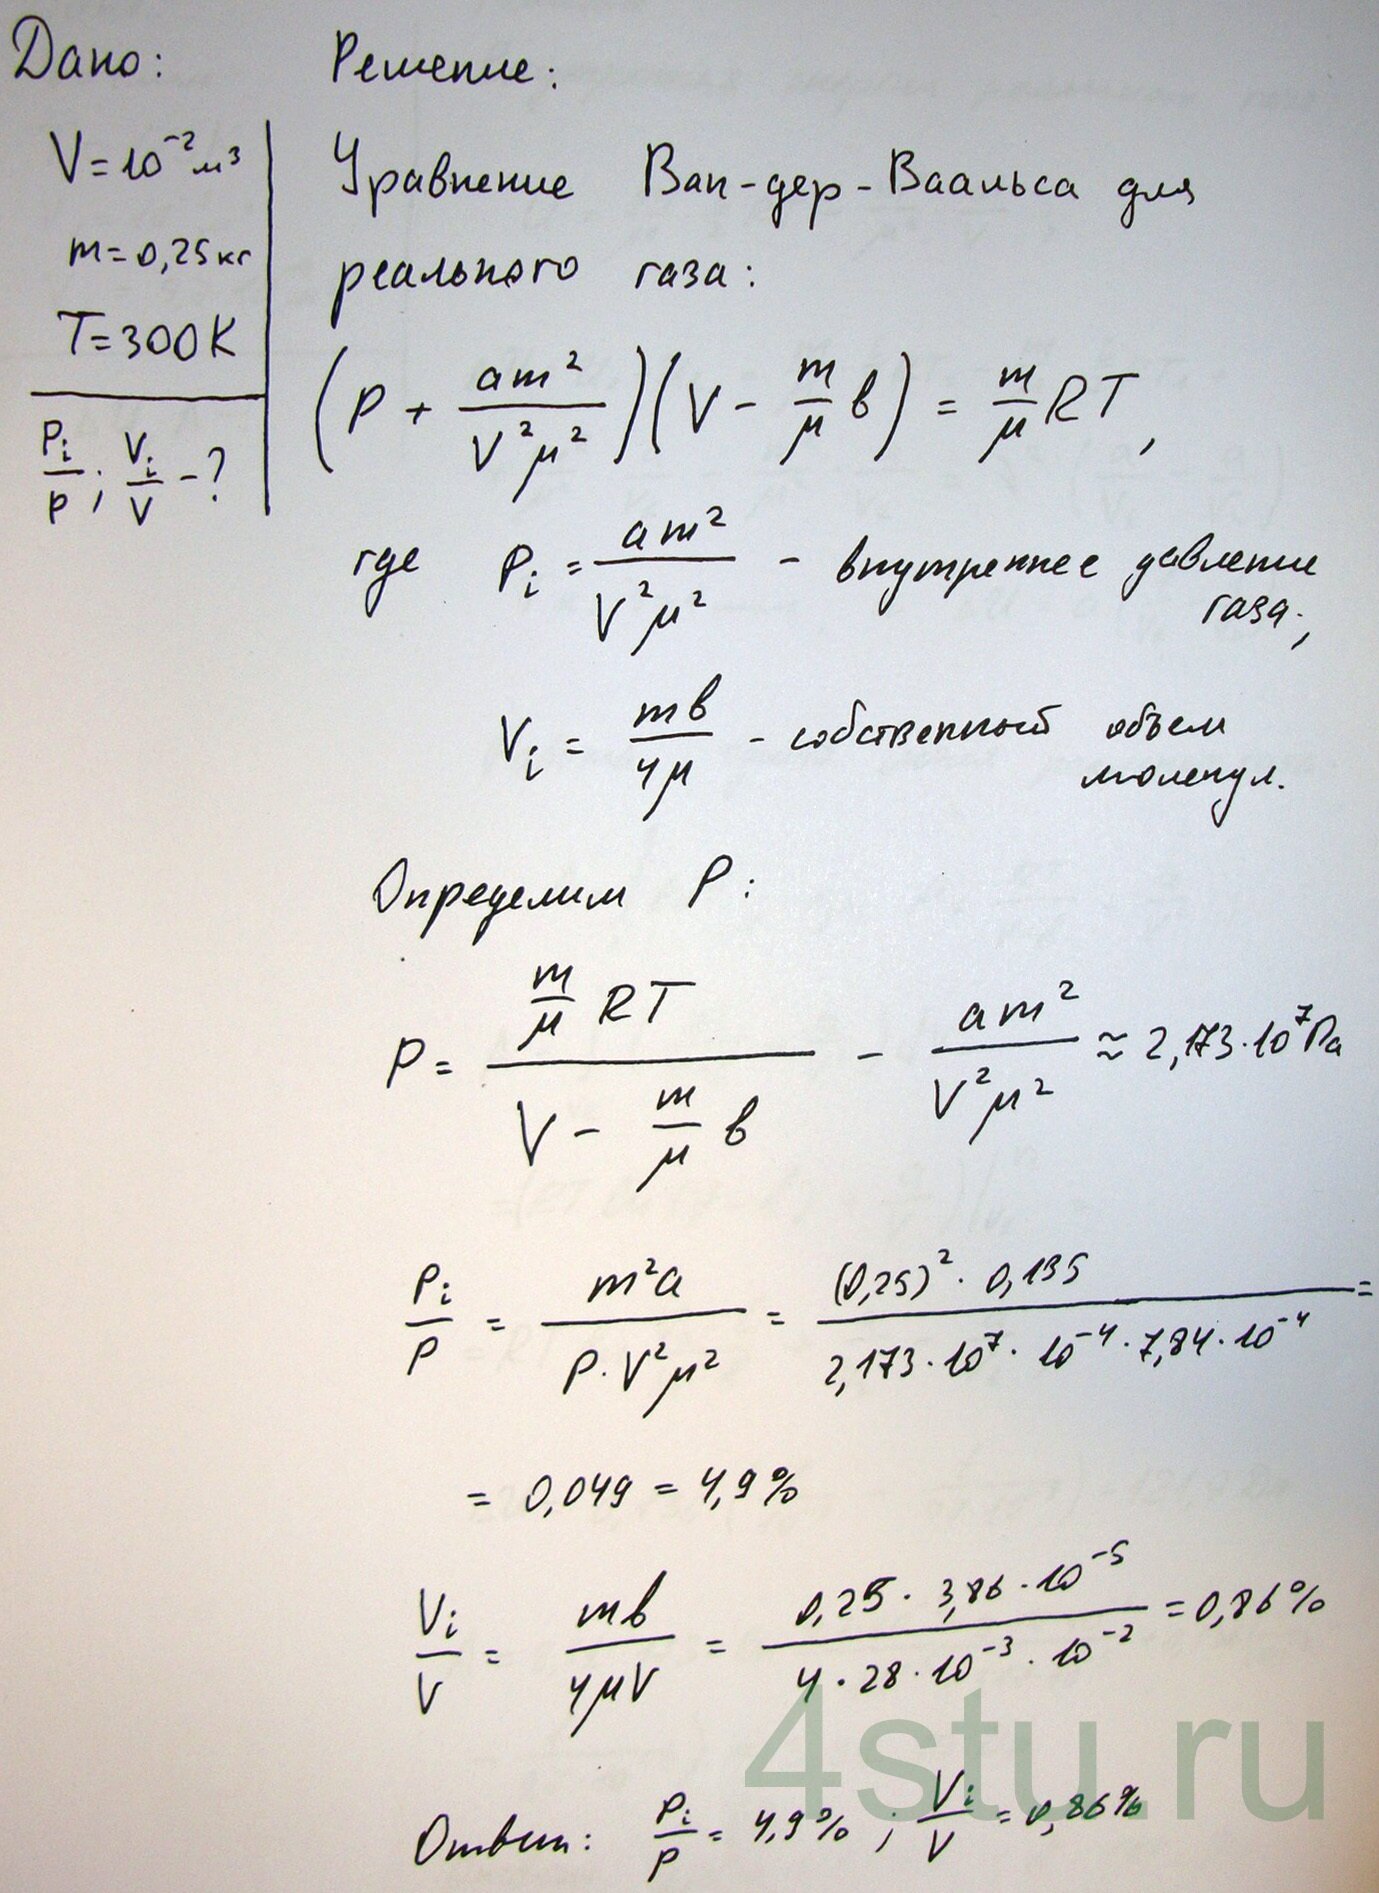 Дано:
V = 10⁻² м³
m = 0,25 кг
T = 300 K
Pᵢ/P ; Vᵢ/V - ?
Решение:
Уравнение Ван-дер-Ваальса для
реального газа:
(P + am²/V²μ²)(V - m/μ в) = m/μ RT,
где Pᵢ = am²/V²μ² - внутреннее давление
газа;
Vᵢ = mв/4μ - собственный объем
молекул.
Определим P:
P = (m/μ RT)/(V - m/μ в) - am²/V²μ² ≈ 2,173·10⁷ Па
Pᵢ/P = m²a/(P·V²μ²) = ((0,25)²·0,135)/(2,173·10⁷·10⁻⁴·7,84·10⁻⁴) =
= 0,049 = 4,9%
Vᵢ/V = mв/4μV = (0,25·3,86·10⁻⁵)/(4·28·10⁻³·10⁻²) = 0,86%
Ответ: Pᵢ/P = 4,9% ; Vᵢ/V = 0,86%
4stu.ru